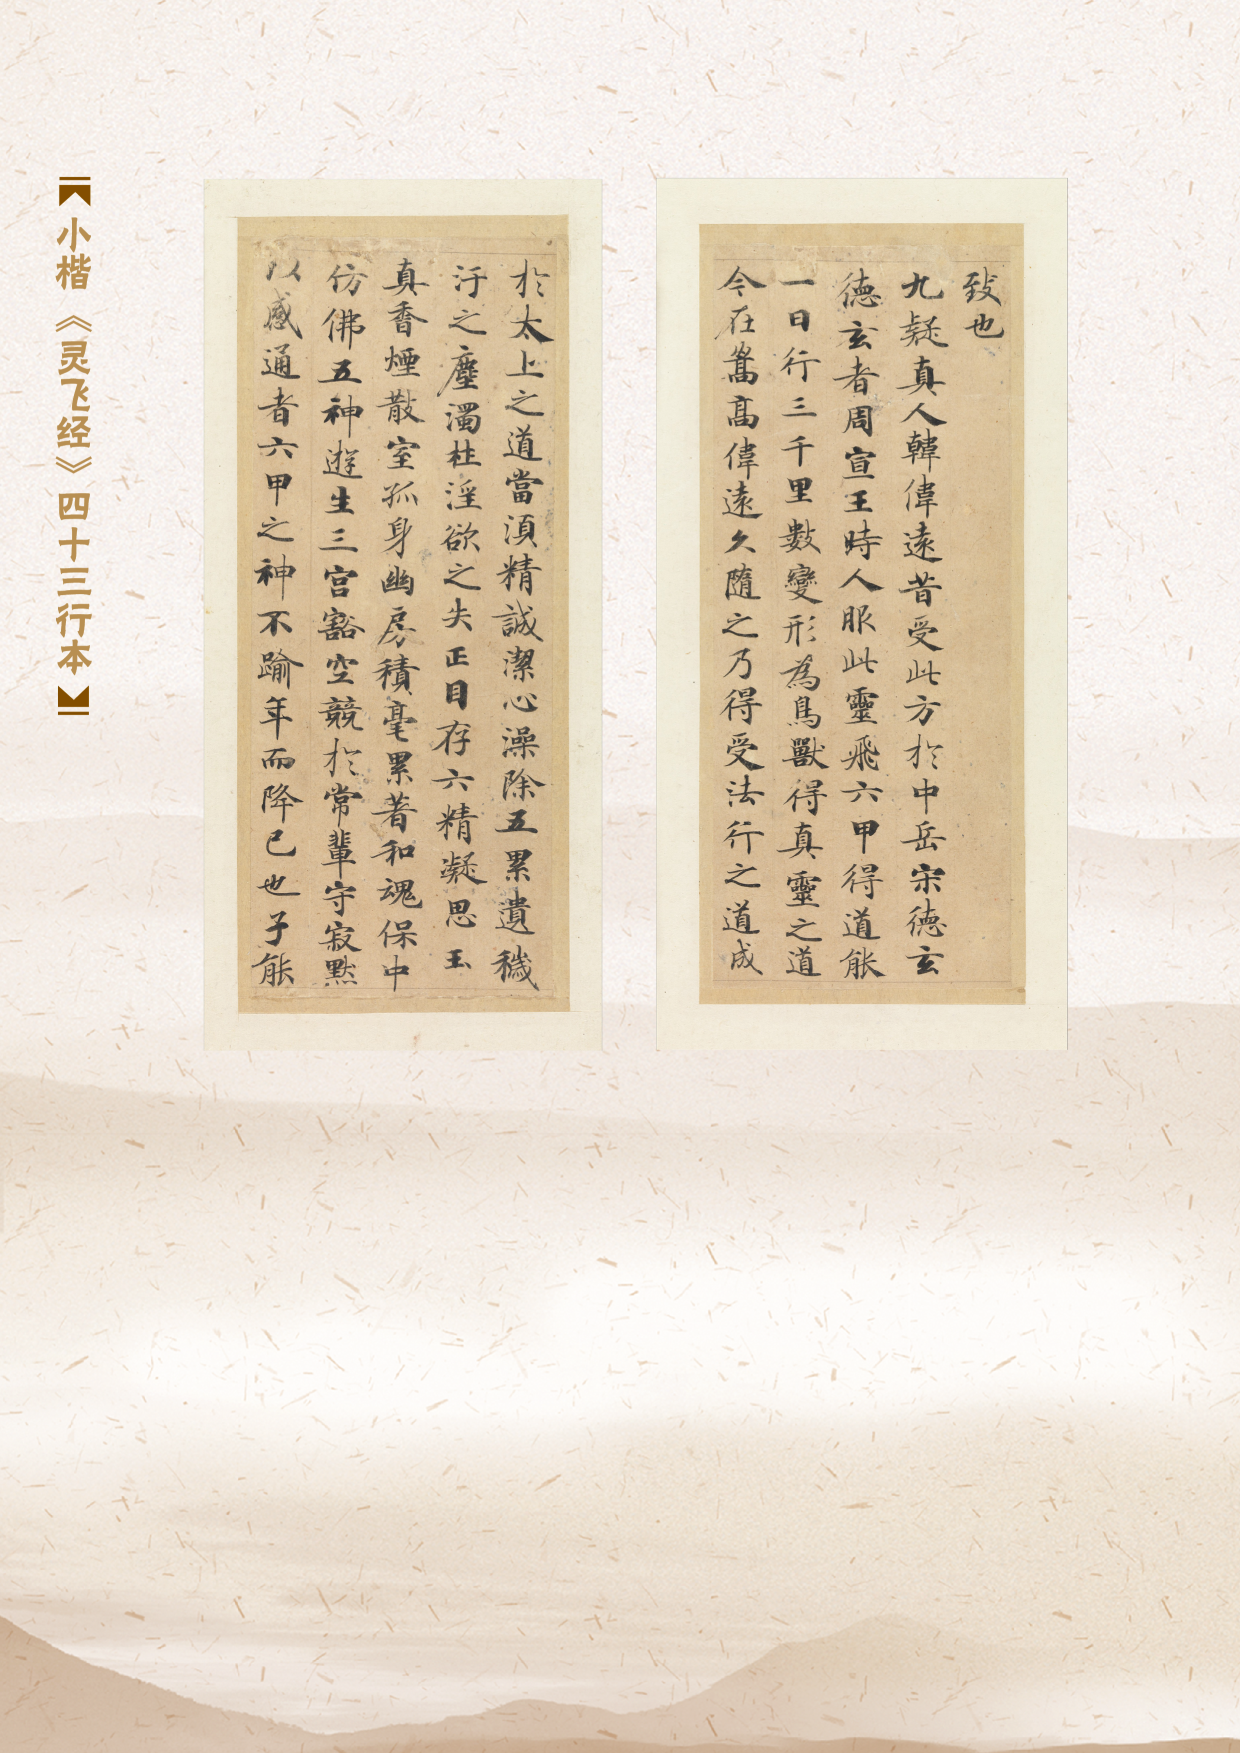 致也
九疑真人韓偉遠昔受此方於中岳宋德玄
德玄者周宣王時人服此靈飛六甲得道能
一日行三千里數變形為鳥獸得真靈之道
今在嵩髙偉遠久隨之乃得受法行之道成
於太上之道當湏精誠潔心澡除五累遺穢
汙之塵濁杜淫欲之失正目存六精凝思玉
真香煙散室孤身幽房積毫累著和魂保中
仿佛五神遊生三宫豁空競於常輩守寂默
以感通者六甲之神不踰年而降已也子能
【小楷《灵飞经》四十三行本】